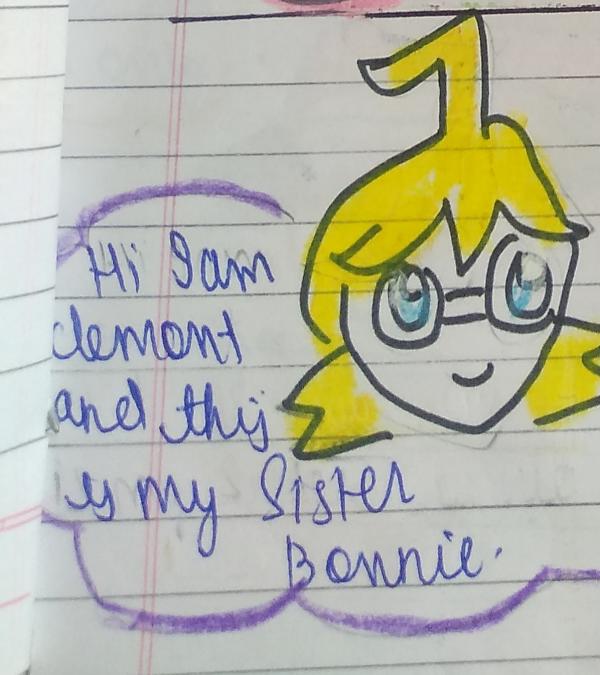 Hi I am
clemont
and this
is my Sister
Bonnie.